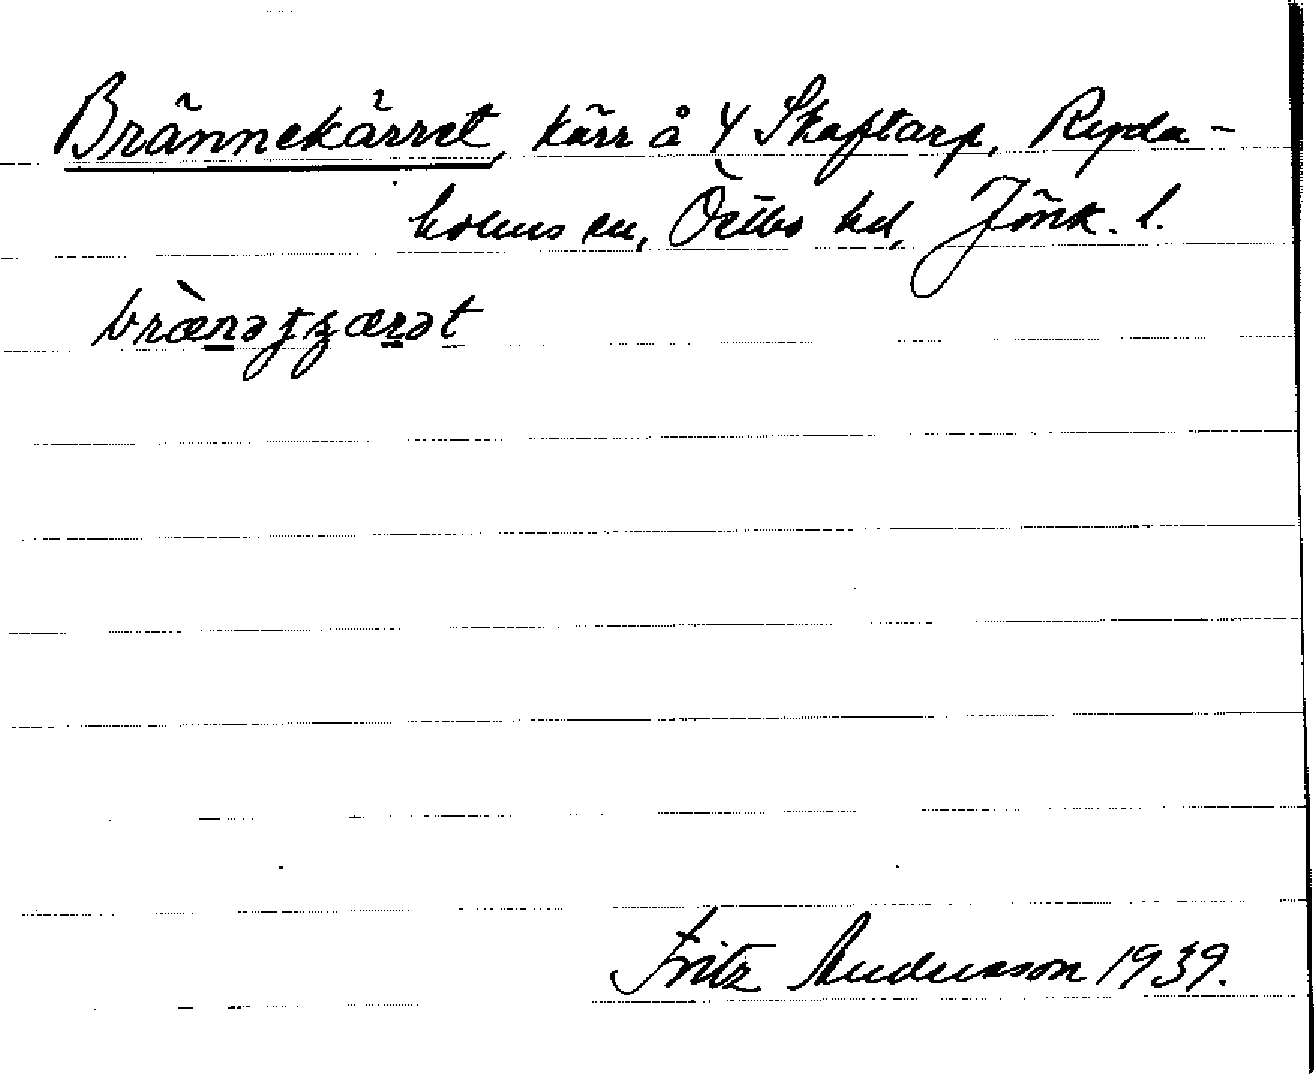 Brännekärret, kärr å Y Skaftarp, Ryda-
holms sn, Östbo hd, Jönk. l.
Fritz Andersson 1939.